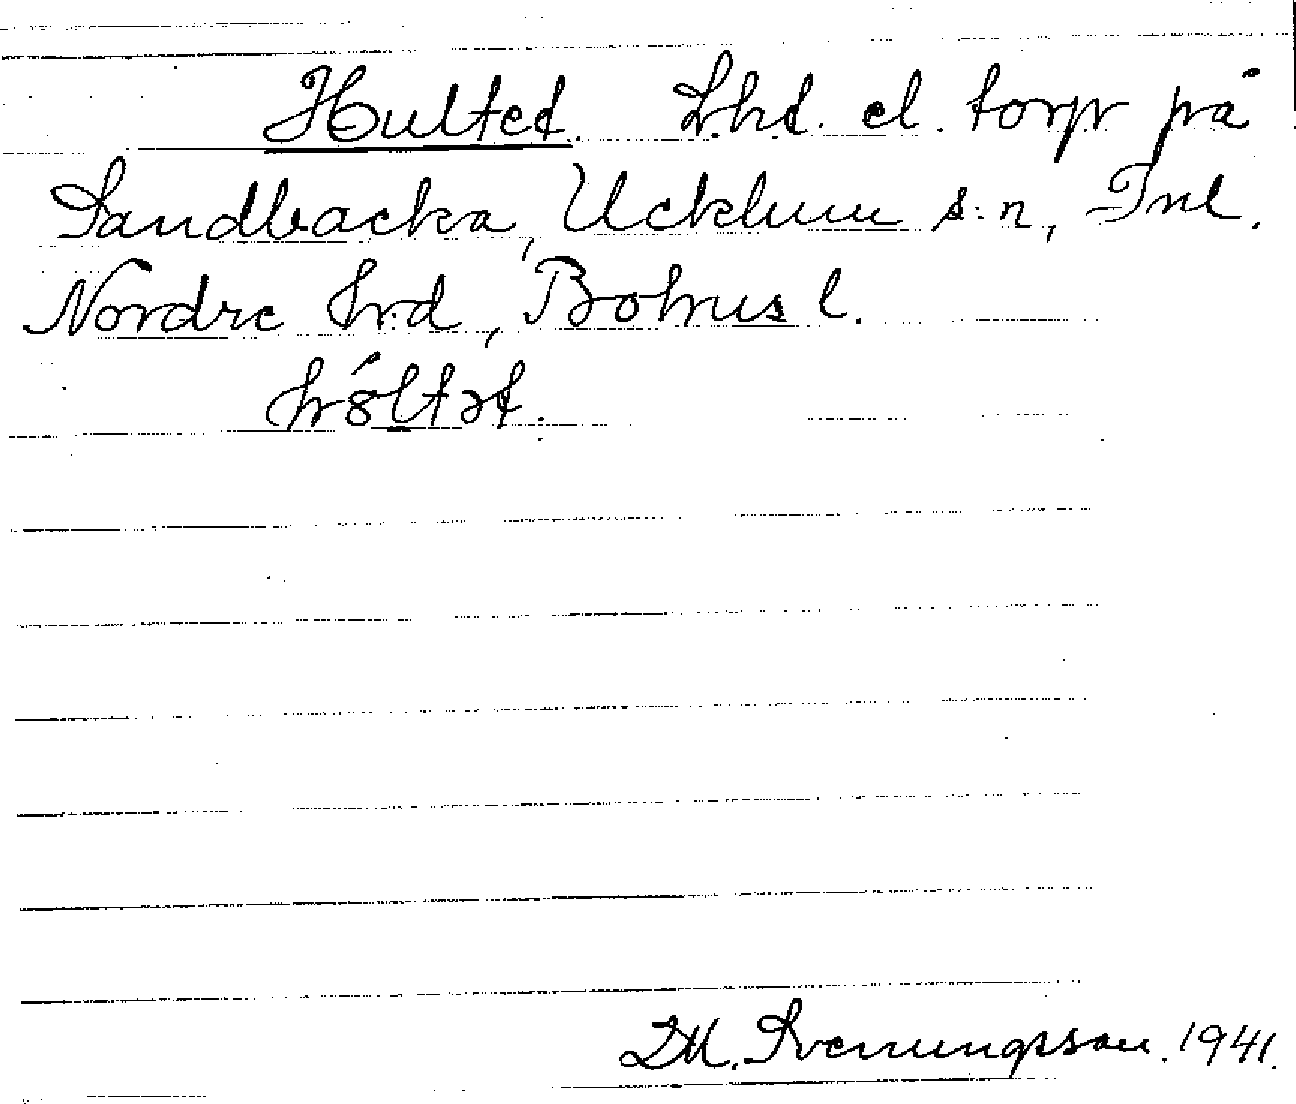 Hultet. Lhd. el. torp på
Sandbacka, Ucklum s:n, Inl.
Nordre hrd, Bohusl.
hs̀ltət.
M. Svenungsson. 1941.